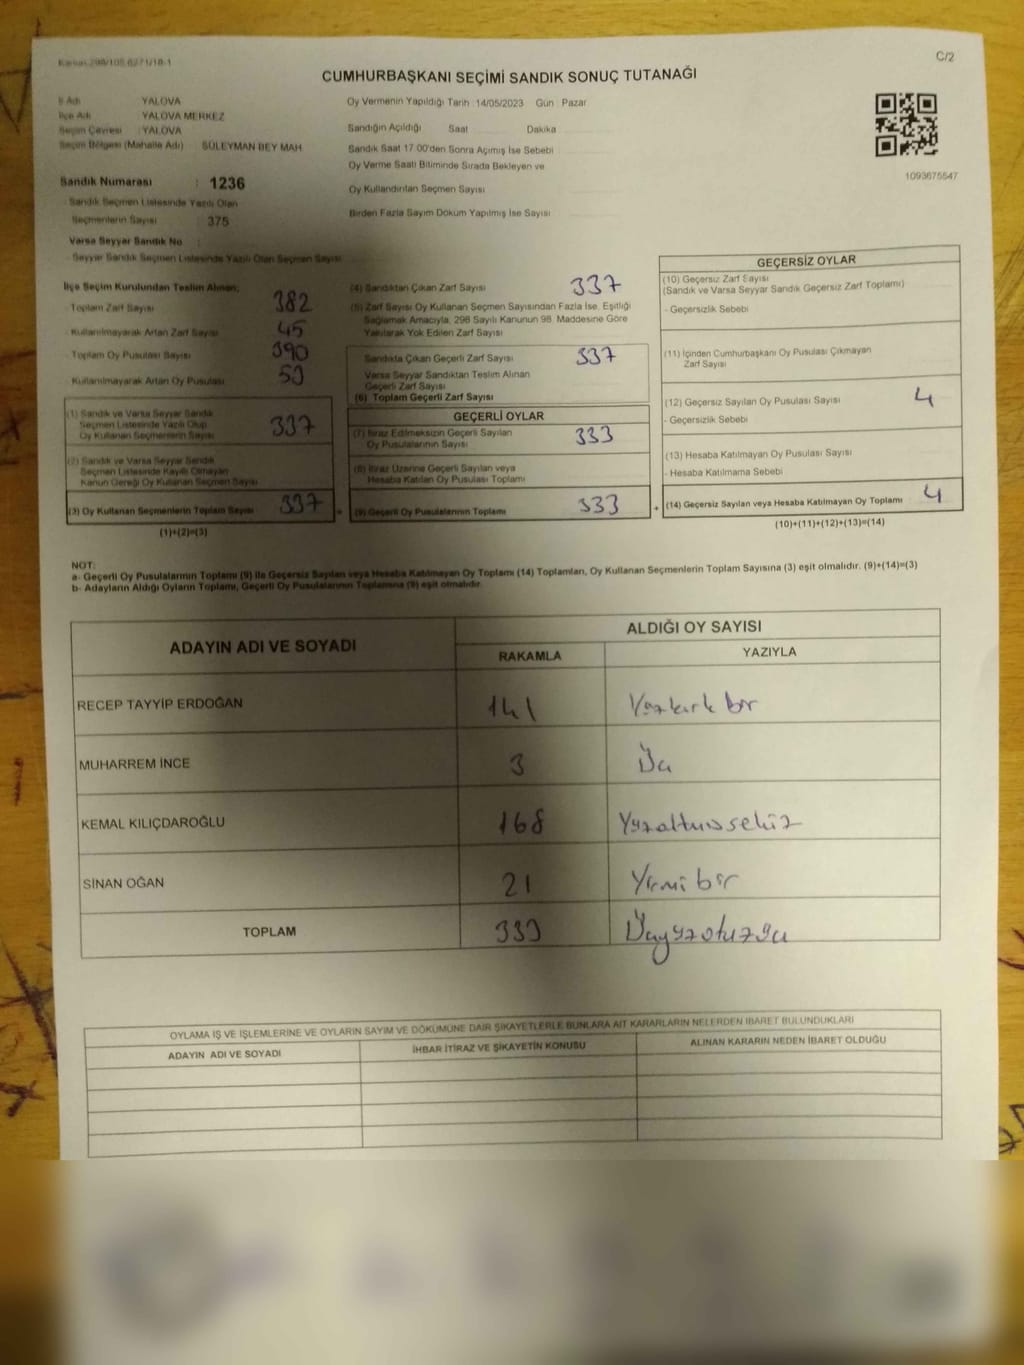 C/2
CUMHURBAŞKANI SEÇİMİ SANDIK SONUÇ TUTANAĞI
İl Adı YALOVA
İlçe Adı YALOVA MERKEZ
Seçim Çevresi : YALOVA
Seçim Bölgesi (Mahalle Adı) SÜLEYMAN BEY MAH.
Sandık Numarası : 1236
Sandık Seçmen Listesinde Yazılı Olan
Seçmenlerin Sayısı : 375
Varsa Seyyar Sandık No :
- Seyyar Sandık Seçmen Listesinde Yazılı Olan Seçmen Sayısı
Oy Vermenin Yapıldığı Tarih : 14/05/2023 Gün : Pazar
Sandığın Açıldığı Saat Dakika
Sandık Saat 17:00'den Sonra Açılmış İse Sebebi
Oy Verme Saati Bitiminde Sırada Bekleyen ve
Oy Kullandırılan Seçmen Sayısı
Birden Fazla Sayım Döküm Yapılmış İse Sayısı
1093675547
İlçe Seçim Kurulundan Teslim Alınan;
- Toplam Zarf Sayısı 382
- Kullanılmayarak Artan Zarf Sayısı 45
- Toplam Oy Pusulası Sayısı 390
- Kullanılmayarak Artan Oy Pusulası 53
(1) Sandık ve Varsa Seyyar Sandık
Seçmen Listesinde Yazılı Olup
Oy Kullanan Seçmenlerin Sayısı 337
(2) Sandık ve Varsa Seyyar Sandık
Seçmen Listesinde Kayıtlı Olmayan
Kanun Gereği Oy Kullanan Seçmen Sayısı
(3) Oy Kullanan Seçmenlerin Toplam Sayısı 337
(1)+(2)=(3)
(4) Sandıktan Çıkan Zarf Sayısı 337
(5) Zarf Sayısı Oy Kullanan Seçmen Sayısından Fazla İse, Eşitliği
Sağlamak Amacıyla, 298 Sayılı Kanunun 98. Maddesine Göre
Yakılarak Yok Edilen Zarf Sayısı
Sandıkta Çıkan Geçerli Zarf Sayısı 337
Varsa Seyyar Sandıktan Teslim Alınan
Geçerli Zarf Sayısı
(6) Toplam Geçerli Zarf Sayısı
GEÇERLİ OYLAR
(7) İtiraz Edilmeksizin Geçerli Sayılan
Oy Pusulalarının Sayısı 333
(8) İtiraz Üzerine Geçerli Sayılan veya
Hesaba Katılan Oy Pusulası Toplamı
(9) Geçerli Oy Pusulalarının Toplamı 333
GEÇERSİZ OYLAR
(10) Geçersiz Zarf Sayısı
(Sandık ve Varsa Seyyar Sandık Geçersiz Zarf Toplamı)
- Geçersizlik Sebebi
(11) İçinden Cumhurbaşkanı Oy Pusulası Çıkmayan
Zarf Sayısı
(12) Geçersiz Sayılan Oy Pusulası Sayısı 4
- Geçersizlik Sebebi
(13) Hesaba Katılmayan Oy Pusulası Sayısı
- Hesaba Katılmama Sebebi
+ (14) Geçersiz Sayılan veya Hesaba Katılmayan Oy Toplamı 4
(10)+(11)+(12)+(13)=(14)
NOT:
a- Geçerli Oy Pusulalarının Toplamı (9) ile Geçersiz Sayılan veya Hesaba Katılmayan Oy Toplamı (14) Toplamları, Oy Kullanan Seçmenlerin Toplam Sayısına (3) eşit olmalıdır. (9)+(14)=(3)
b- Adayların Aldığı Oyların Toplamı, Geçerli Oy Pusulalarının Toplamına (9) eşit olmalıdır.
ADAYIN ADI VE SOYADI ALDIĞI OY SAYISI
RAKAMLA YAZIYLA
RECEP TAYYİP ERDOĞAN 141 Yüzkırk bir
MUHARREM İNCE 3 Üç
KEMAL KILIÇDAROĞLU 168 Yüzaltmışsekiz
SİNAN OĞAN 21 Yirmi bir
TOPLAM 333 Üçyüzotuzüç
OYLAMA İŞ VE İŞLEMLERİNE VE OYLARIN SAYIM VE DÖKÜMÜNE DAİR ŞİKAYETLERLE BUNLARA AİT KARARLARIN NELERDEN İBARET BULUNDUKLARI
ADAYIN ADI VE SOYADI İHBAR İTİRAZ VE ŞİKAYETİN KONUSU ALINAN KARARIN NEDEN İBARET OLDUĞU